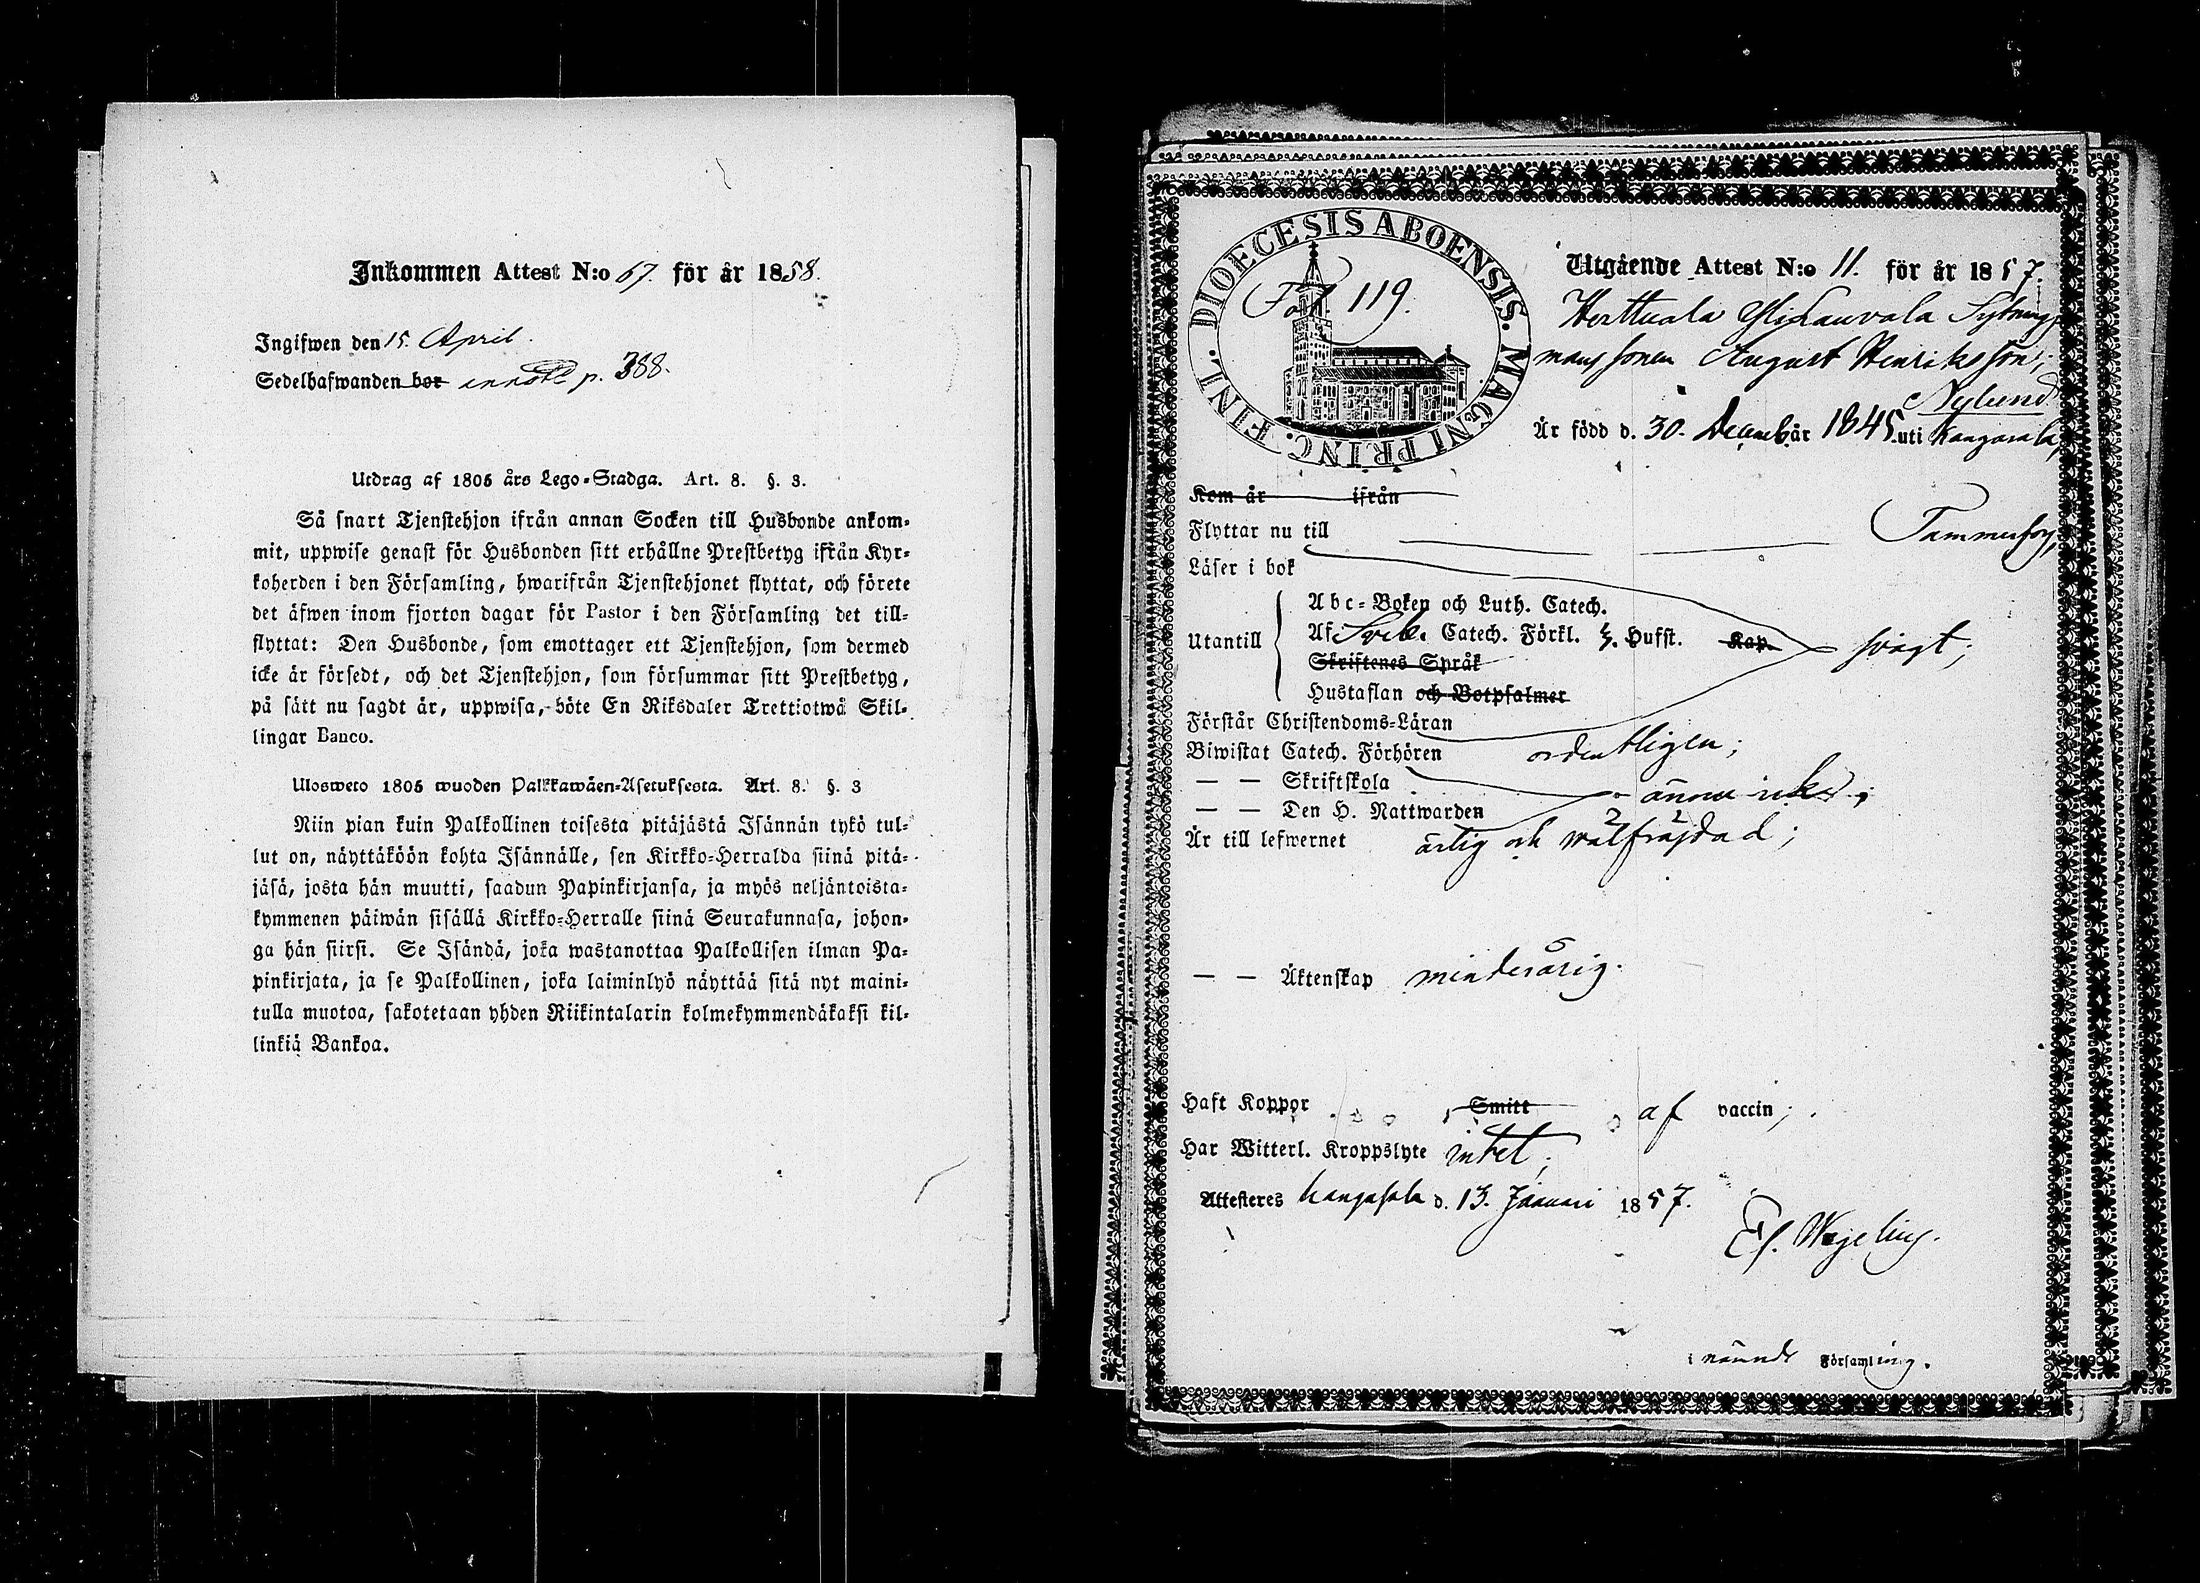 Inkommen Attest N:o 67. för år 1858.
Ingifwen den 15. April.
Sedelhafwanden bor p. 388.
Utdrag af 1805 års Lego-Stadga. Art. 8. §. 3.
Så snart Tjenstehjon ifrån annan Socken till Husbonde ankom-
mit, uppwise genast för Husbonden sitt erhållne Prestbetyg ifrån Kyr-
koherden i den Församling, hwarifrån Tjenstehjonet flyttat, och förete
det äfwen inom fjorton dagar för Pastor i den Församling det till-
flyttat: Den Husbonde, som emottager ett Tjenstehjon, som dermed
icke är försedt, och det Tjenstehjon, som försummar sitt Prestbetyg,
på sätt nu sagdt är, uppwisa, böte En Riksdaler Trettiotwå Skil-
lingar Banco.
Ulosweto 1805 wuoden Palkkawäen-Asetuksesta. Art. 8. §. 3
Niin pian kuin Palkollinen toisesta pitäjästä Isännän tykö tul-
lut on, näyttäköön kohta Isännälle, sen Kirkko-Herralda siinä pitä-
jäsä, josta hän muutti, saadun Papinkirjansa, ja myös neljäntoista-
kymmenen päiwän sisällä Kirkko-Herralle siinä Seurakunnasa, johon-
ga hän siirsi. Se Isändä, joka wastanottaa Palkollisen ilman Pa-
pinkirjata, ja se Palkollinen, joka laiminlyö näyttää sitä nyt maini-
tulla muotoa, sakotetaan yhden Riikintalarin kolmekymmendäkaksi kil-
linkiä Bankoa.
DIOECESIS ABOENSIS. MAGNI PRINC. FINL.
Fol. 119.
Utgående Attest N:o 11. för år 1857.
Herttuala
sonen August Henriksson,
Nylund
Är född d. 30. December år 1845 uti Kangasala,
Kom år ifrån
Flyttar nu till Tammerfors,
Läser i bok
Utantill
Abc-Boken och Luth. Catech.
Af Sveb. Catech. Förkl. Hufst. Kap. svagt;
Skriftenes Språk
Hustaflan och Botpsalmer
Förstår Christendoms-Läran
Biwistat Catech. Förhören ordentligen;
— — Skriftskola
— — Den H. Nattwarden ännu icke;
Är till lefwernet ärlig och wälfräjdad;
— — Äktenskap minderårig.
Haft Koppor Smitt af vaccin;
Har Witterl. Kroppslyte intet;
Attesteres Kangasala d. 13. Januari 1857.
Wegelius.
Församling.